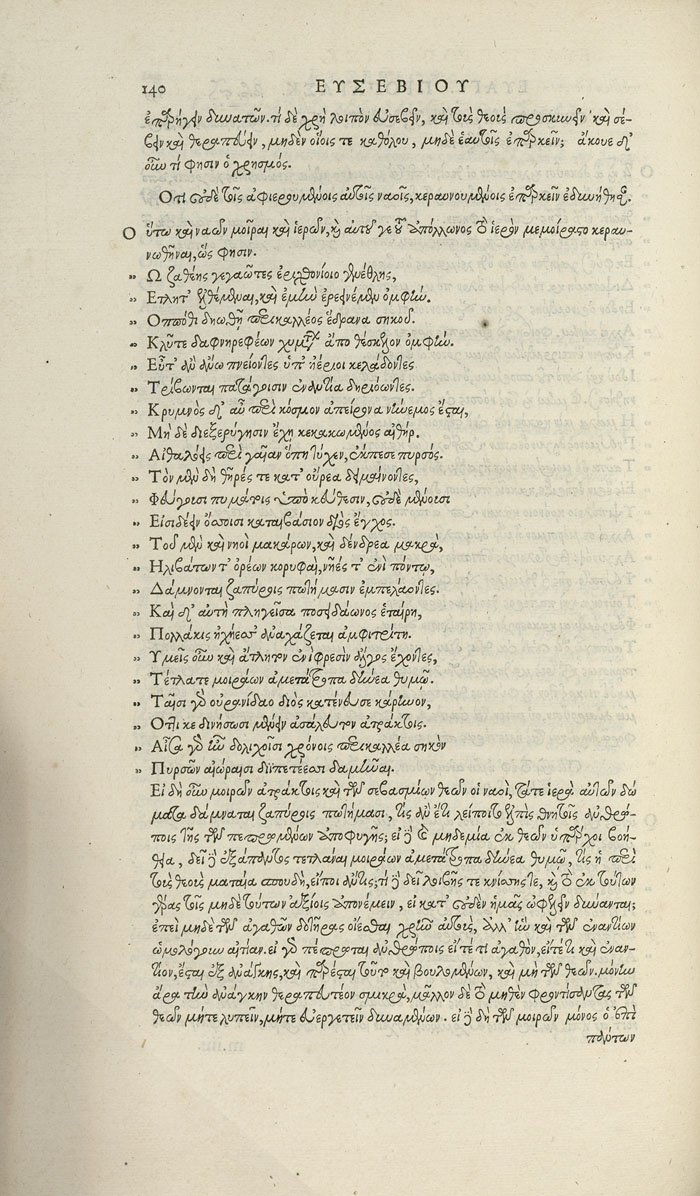 140 ΕΥΣΕΒΙΟΥ
ἐπαρήγειν δυνατῶν. τί δὲ χρὴ λοιπὸν εὐσεβεῖν, καὶ τοὺς θεοὺς προσκυνεῖν καὶ σέ-
βειν καὶ θεραπεύειν, μηδὲν οἵοις τε καθόλου, μηδὲ ἑαυτοῖς ἐπαρκεῖν; ἄκουε δ'
οὖν τί φησιν ὁ χρησμός.
Ὅτι οὐδὲ τοῖς ἀφιερουμένοις αὐτοῖς ναοῖς, κεραυνουμένοις ἐπαρκεῖν ἐδυνήθησαν.
Οὕτω καὶ ναῶν μοῖραι καὶ ἱερῶν, καὶ αὐτοῦ γε τοῦ Ἀπόλλωνος τὸ ἱερὸν μεμοίρατο κεραυ-
νωθῆναι, ὥς φησιν.
" Ὦ ζαθέης γεγαῶτες ἐριχθονίοιο γενέθλης,
" Ἔτλητ' ἐλθέμεναι, καὶ ἐμὴν ἐρεεινέμεν ὀμφὴν.
" Ὁππόθι δηωθῇ περικαλλέος ἕδρανα σηκοῦ.
" Κλῦτε δαφνηρεφέων μυχάτων ἄπο θέσκελον ὀμφὴν.
" Εὖτ' ἂν ἄνω πνείοντες ὑπ' ἠέριοι κελάδοντες
" Τρίβωνται πατάγοισιν ἐναντία δηριόωντες.
" Κρυμνὸς δ' αὖ περὶ κόσμον ἀπείρονα νήνεμος ἔσται,
" Μὴ δὲ διεξερύγῃσιν ἔχῃ κεκακωμένος αἰθήρ.
" Αἰθαλόεις περὶ γαῖαν ὅπῃ τύχεν, ἔκπεσε πυρσός.
" Τὸν μὲν δὴ θῆρές τε κατ' οὔρεα δειμαίνοντες,
" Φεύγουσι πυμάτοις ὑπὸ κεύθεσιν, οὐδὲ μένουσι
" Εἰσιδέειν ὄσσοισι καταιβάσιον διὸς ἔγχος.
" Τοῦ μὲν καὶ νηοὶ μακάρων, καὶ δένδρεα μακρὰ,
" Ἠλιβάτων τ' ὀρέων κορυφαὶ, νῆές τ' ἐνὶ πόντῳ,
" Δάμνονται ζαπύροις ποτήμασιν ἐμπελάοντες.
" Καὶ δ' αὐτὴ πληγεῖσα ποσειδάωνος ἑταίρη,
" Πολλάκις ἠχήεσσ' ἀναχάζεται ἀμφιτρίτη.
" Ὑμεῖς οὖν καὶ ἄτλητον ἐνὶ φρεσὶν ἄλγος ἔχοντες,
" Τέτλατε μοιράων ἀμετάτροπα δήνεα θυμῷ.
" Ταῖσι γὰρ οὐρανίδαο διὸς κατένευσε κάρηνον,
" Ὅττι κε δινήσωσι μένειν ἀσάλευτον ἀτράκτοις.
" Αἶσα γὰρ ἦν δολιχοῖσι χρόνοις περικαλλέα σηκὸν
" Πυρσῶν αἰώραισι διϊπετέεσσι δαμῆναι.
Εἰ δὴ οὖν μοιρῶν ἀτράκτοις καὶ τῶν σεβασμίων θεῶν οἱ ναοὶ, τά τε ἱερὰ αὐτῶν δώ
ματα δάμναται ζαπύροις ποτήμασι, τίς ἂν ἔτι λείποιτο ἐλπὶς θνητοῖς ἀνθρώ-
ποις τῆς τῶν πεπρωμένων ἀποφυγῆς; εἰ δὲ καὶ μηδεμία ἐκ θεῶν ὑπάρχοι βοή-
θεια, δεῖ δὲ ἐξάπαντος τετλάναι μοιράων ἀμετάτροπα δήνεα θυμῷ, τίς ἡ περὶ
τοὺς θεοὺς ματαία σπουδὴ, εἴποι ἄν τις; τί δὲ δεῖ λοιβῆς τε κνίσσης τε, καὶ τὸ ἐκ τούτων
γέρας τοῖς μηδὲ τούτων ἀξίοις ἀπονέμειν, εἰ κατ' οὐδὲν ἡμᾶς ὠφελεῖν δύνανται;
ἐπεὶ μηδὲ τῶν ἀγαθῶν δοτῆρας οἴεσθαι χρὴν αὐτοὺς, ἀλλ' ἣν καὶ τῶν ἐναντίων
ὡμολόγουν αἰτίαν. εἰ γὰρ πέπρωται ἀνθρώποις εἴτέ τι ἀγαθὸν, εἴτέ τι καὶ ἐναν-
τίον, ἔσται ἐξ ἀνάγκης, καὶ παρέσται τοῦτο καὶ βουλομένων, καὶ μὴ τῶν θεῶν. μόνην
ἄρα τὴν ἀνάγκην θεραπευτέον σμικρὰ, μᾶλλον δὲ τὸ μηθὲν φροντίσαντας τῶν
θεῶν μήτε λυπεῖν, μήτε εὐεργετεῖν δυναμένων. εἰ δὲ δὴ τῶν μοιρῶν μόνος ὁ ἐπὶ
πάντων